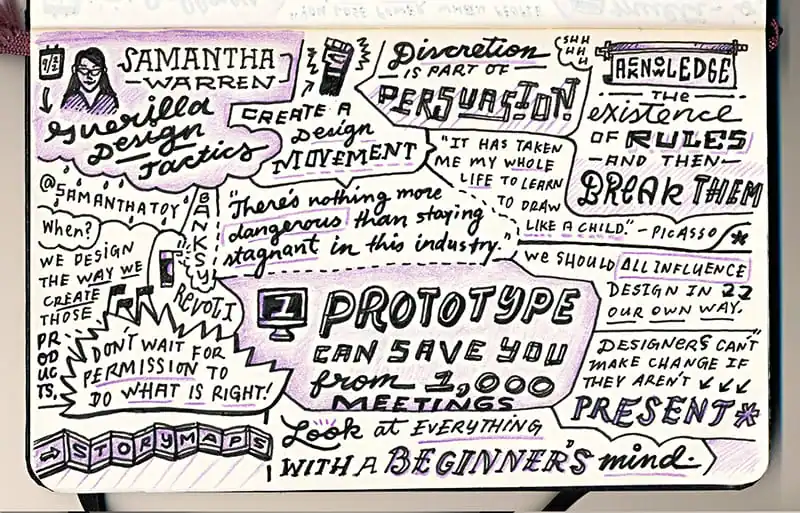 SAMANTHA
WARREN
Guerilla
Design
Tactics
@SAMANTHATOY
When?
WE DESIGN
THE WAY WE
CREATE
THOSE
PRODUCTS.
BANKSY
REVOLT
DON'T WAIT FOR
PERMISSION TO
DO WHAT IS RIGHT!
STORYMAPS
CREATE A
Design
MOVEMENT
"There's nothing more
dangerous than staying
stagnant in this industry."
1 PROTOTYPE
CAN SAVE YOU
from 1,000
MEETINGS
Look at EVERYTHING
WITH A BEGINNER'S mind.
Discretion
IS PART OF
PERSUASION
SHH
HH
H
"IT HAS TAKEN
ME MY WHOLE
LIFE TO LEARN
TO DRAW
LIKE A CHILD." - PICASSO
AKNOWLEDGE
THE
existence
OF RULES
AND THEN
BREAK THEM
WE SHOULD ALL INFLUENCE
DESIGN IN
OUR OWN WAY.
DESIGNERS CAN'T
MAKE CHANGE IF
THEY AREN'T
PRESENT*